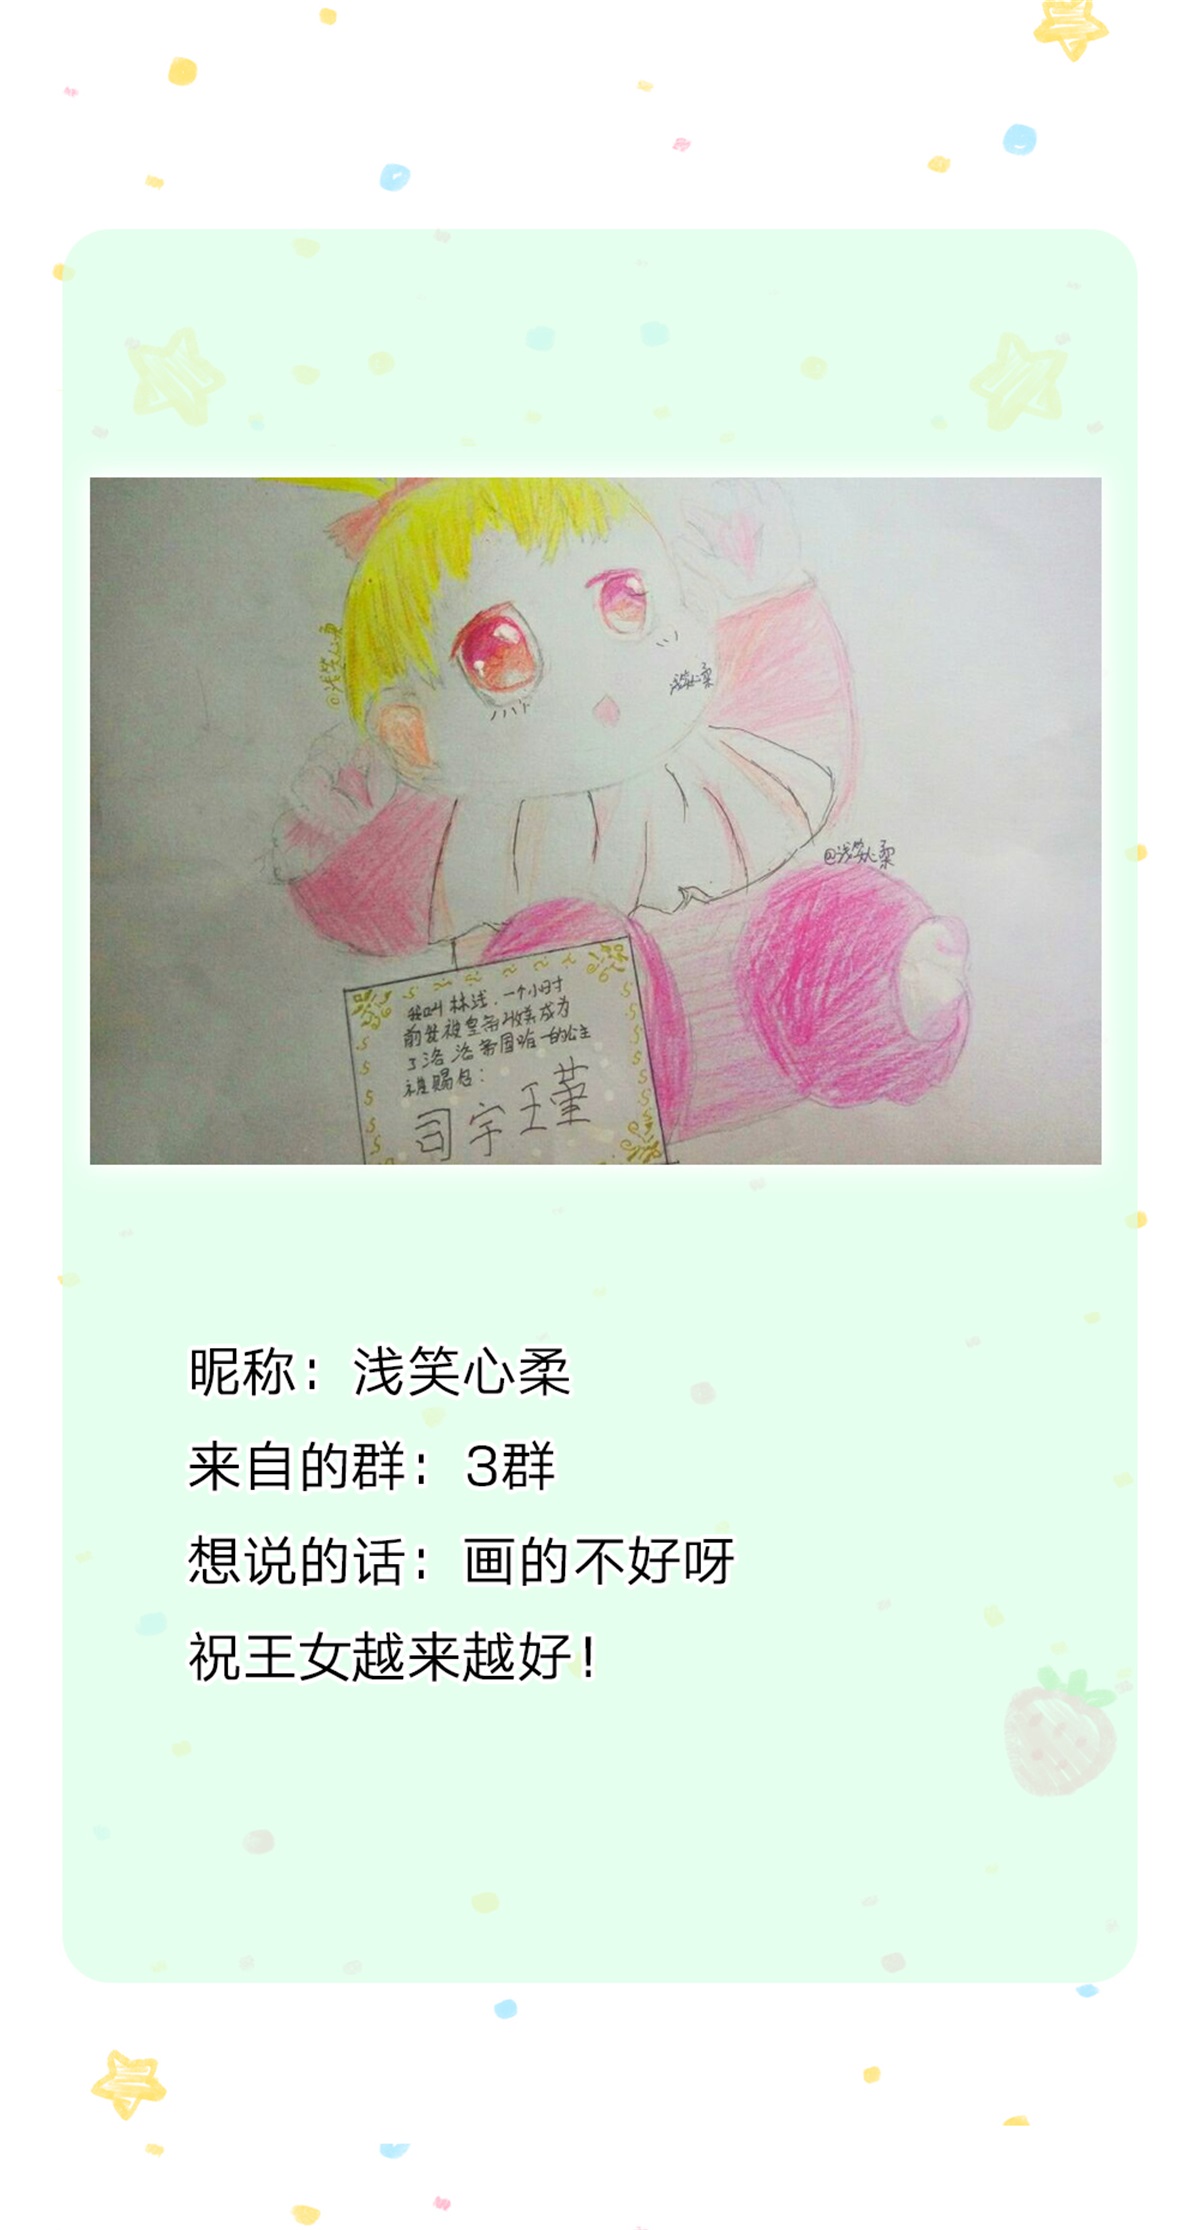 @浅笑心柔
浅笑心柔
@浅笑心柔
我叫林浅，一个小时
前我被皇帝收养成为
了洛洛帝国唯一的公主
被赐名：
司宇瑾
昵称：浅笑心柔
来自的群：3群
想说的话：画的不好呀
祝王女越来越好！